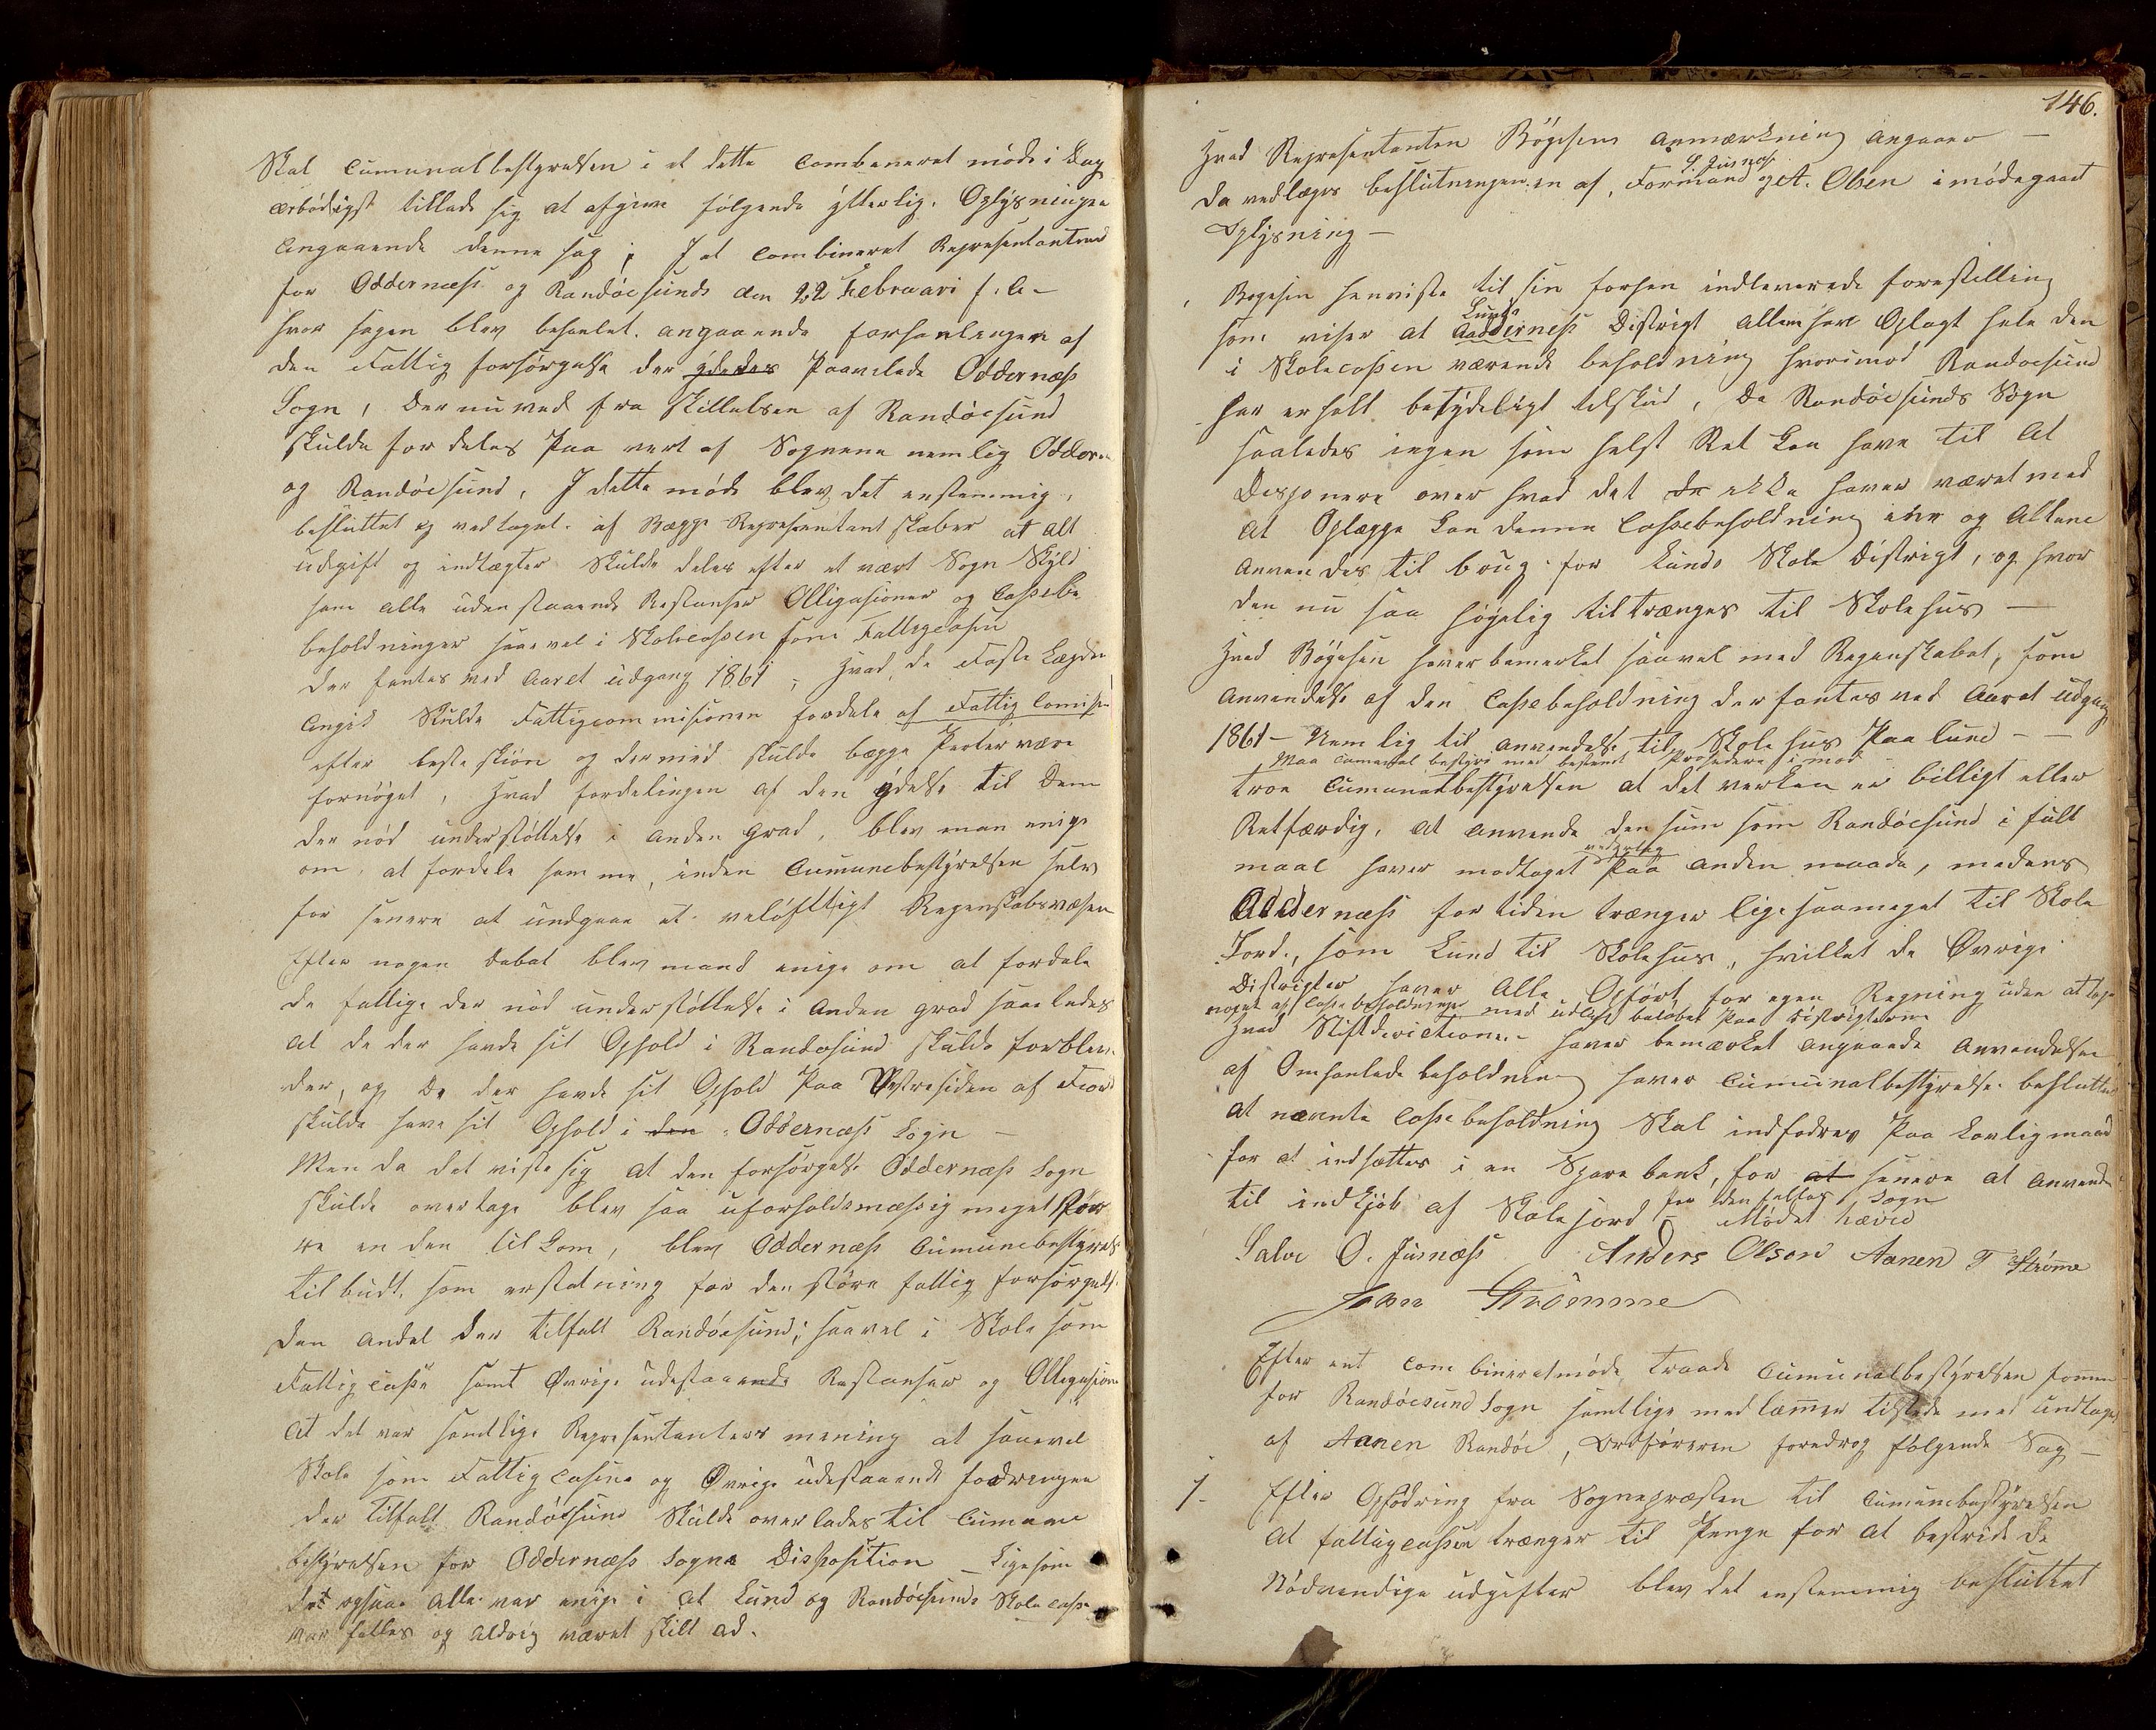 Skal Cumunalbestyrelsen i et dette Combeneret møde i Dag
ærbødigst tillade sig at afgive følgende ytterlig. Oplysninger
angaaende denne sag; I et Combineret Representantmøde
for Oddernæss og Randøesunds den 22 Februari f. a -
hvor sagen blev behanlet. angaaende forhanlingen af
den Fattig forsørgelse der ydedes Paavilede Oddernæss
Sogn, der nu ved fra skillelsen af Randøesund
skulde for deles Paa vert af Sognene nemlig Oddern.
og Randøesund, I dette møde blev det enstemmig,
besluttet og vedtaget. af Begge Representantskaber at alt
udgift og indtægter skulde deles efter et vært Sogn Skyld
som alle uden staaende Restanser Olligasioner og Cassebe
beholdninger saavel i Skolecassen som Fattigcasen
der fantes ved Aaret udgang 1861; Hvad, de Faste Lægder
angik skulde Fattigcommisionen fordele af Fattig Comisen
efter beste skiøn og dermed skulde begge Parter være
fornøget, Hvad fordelingen af den ydelse til Dem
der nød understøttelse i anden Grad, blev man enige
om, at fordele samme, inden Cumunebestyrelsen selv
for senere at undgaae et. veløftigt Regenskabsvæsen
Efter nogen Debat blev mand enige om at fordele
de fattige der nød understøttelse i anden grad saaledes
at de der havde sit Ophold i Randøsund skulde forblev.
der, og De der havde sit Ophold Paa Vestresiden af Fiord
skulde have sit Ophold i den Oddernæss Sogn –
Men da det viste sig at den forsørgelse Oddernæss Sogn
skulde overtage blev saa uforholdsmæssig meget Stør
re en den tilkom, blev Oddernæss Cumunebestyrels
tilbudt. som erstatning for den støre fattig forsørgels.
den andel der tilfalt Randøesund; saavel i Skole som
Fattigcasse samt Øvrige udestaaende Restanser og Olligasione
at det var samtlige Representanters mening at saavel
Skole som Fattigcasene og Øvrige udestaaende fordringer
der tilfalt Randøesund skulde overlades til Cumune
bestyrelsen for Oddernæss Sogns Disposition – Ligesom
det ogsaa alle var enige i at Lund og Randøesunds Skole casse
var felles og aldrig været skilt ad.
146.
Hvad Representanten Bøgesens anmærkning angaaer –
da vedlægges beslutningen.en af, Formand S Jusnæs og A. Olsen imødegaaet
Oplysning –
Bøgesen henviste til sin forhen indleverede forestilling
som viser at Lunds Aadderness Distrigt allene har Oplagt hele den
i Skolecassen værende beholdning hvorimod Randøesund
har erholt betydeligt tilskud, da Randøesunds Sogn
saaledes ingen som helst Ret kan have til at
Disponere over hvad det de ikke haver været med
at Oplægge kan denne Cassebeholdning ene og allene
anvendes til boug for Lunds Skole Distrigt, og hvor
den nu saa høgelig tiltrænges til Skolehus –
Hvad Bøgesen haver bemerket saavel med Regenskabet, som
anvendelse af den Cassebeholdning der fantes ved Aaret udgang
1861 – Nemlig til anvendelse til Skolehus Paa Lund – –
Maa Cumunal bestyre med bestemt Prosedere imod
troe Cumunalbestyrelsen at det verken er billigt eller
Retfærdig, at anvende den sum som Randøesund i fult
maal haver modtaget vedgelag Paa anden maade, medens
Addernæss for tiden trænger lige saameget til Skole
Jord, som Lund til Skolehus, hvilket de Øvrige
Distrigter haver alle Opført for egen Regning uden at tage
noget af Cassebeholdningen med udligne beløbet Paa Distrigterne
Hvad Stiftdirictionen haver bemærket angaaende Anvendelsen
af Omhanlede beholdning haver Cumunalbestyrelse. besluttet
at nævnte Casse beholdning skal indfodres Paa Lovlig maade
for at indsættes i en Sparebank, for at senere at anvende
til indkjøb af Skolejord for den felles Sogn
– Mødet hævid
Salve O. Jusnæss Anders Olsen Aanen T Strømme
Johan Strømme
Efter ent Combineretmøde traade Cumunalbestyrelsen sammen
for Randøesund Sogn samtlige medlæmmer tilstede med undtagelse
af Aanen Randøe, Ordføreren foredrog følgende Sag –
1. Efter Opfodring fra Sognepræsten til Cumunebestyrelsen
at fattigcassen trænger til Penge for at bestride de
Nødvendige udgifter blev det enstemmig besluttet